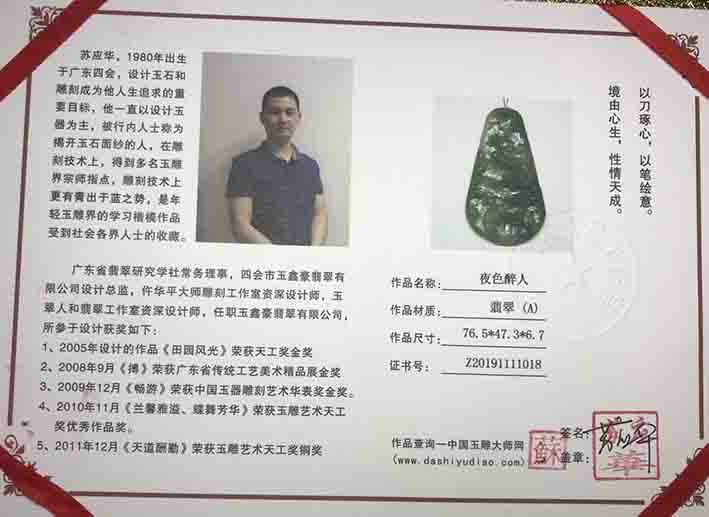 苏应华，1980年出生
于广东四会，设计玉石和
雕刻成为他人生追求的重
要目标，他一直以设计玉
器为主，被行内人士称为
揭开玉石面纱的人，在雕
刻技术上，得到多名玉雕
界宗师指点，雕刻技术上
更有青出于蓝之势，是年
轻玉雕界的学习楷模作品
受到社会各界人士的收藏。
广东省翡翠研究学社常务理事，四会市玉鑫豪翡翠有
限公司设计总监，仵华平大师雕刻工作室资深设计师，玉
翠人和翡翠工作室资深设计师，任职玉鑫豪翡翠有限公司，
所参于设计获奖如下：
1、2005年设计的作品《田园风光》荣获天工奖金奖
2、2008年9月《搏》荣获广东省传统工艺美术精品展金奖
3、2009年12月《畅游》荣获中国玉器雕刻艺术华表奖金奖。
4、2010年11月《兰馨雅溢、蝶舞芳华》荣获玉雕艺术天工
奖优秀作品奖。
5、2011年12月《天道酬勤》荣获玉雕艺术天工奖铜奖
以刀琢心，以笔绘意。
境由心生，性情天成。
作品名称：夜色醉人
作品材质：翡翠（A）
作品尺寸：76.5*47.3*6.7
证书号：Z20191111018
作品查询一中国玉雕大师网
(www.dashiyudiao.com)
蘇
签名：
盖章：